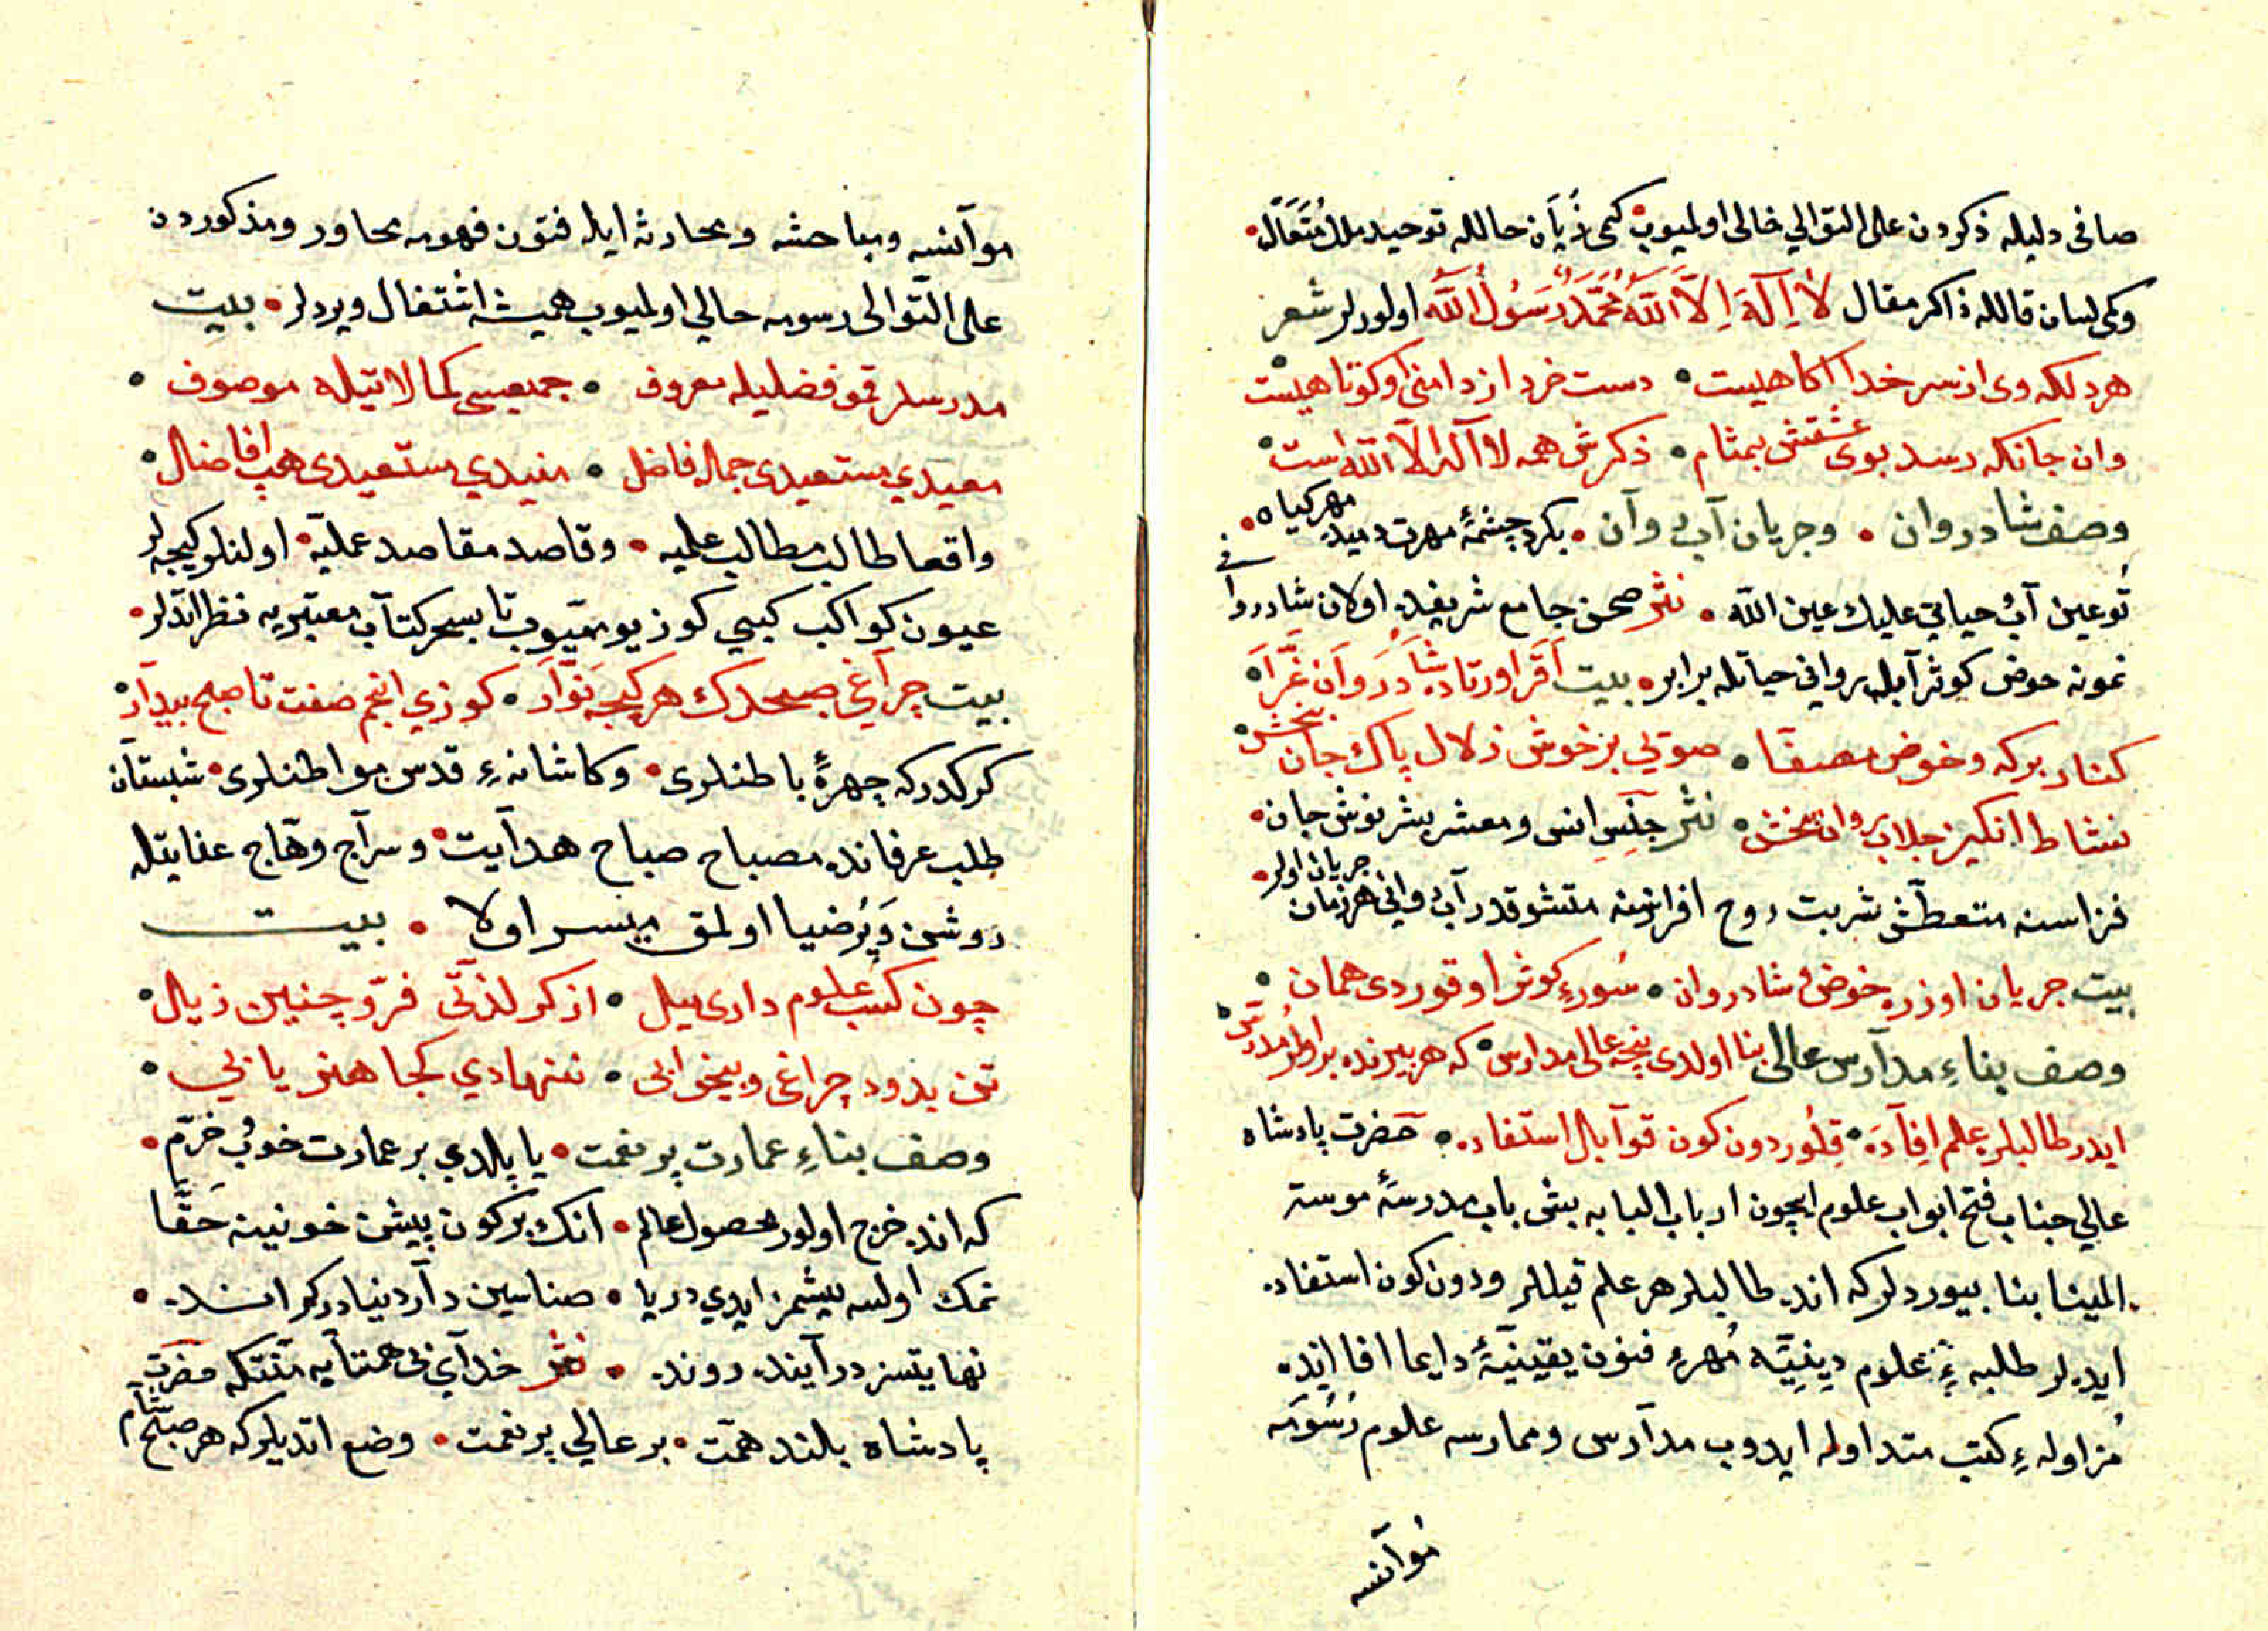 صافی دلیله ذکردن علی التوالي خالی اولمیوب کمی زبان حالله توحید ملك متعال
وکمی لسان قالله ذاکر مقال لا اله الا الله محمد رسول الله اولورلر شعر
هر دلکه وی از سر خدا اکاهیست دست خرد از دامن او کوتاهیست
وان جانکه رسد بوی عشقش بمشام ذکرش همه لا اله الا الله است
وصف شادروان وجریان آب روان بکرد چشمهٔ مهرت دمید مهر کیاه
تو عین آب حیاتي علیك عین الله نثر صحن جامع شریفده اولان شادروانی
نمونه حوض کوثر آبله روانی حیاتله برابر بیت اقر اورتاده شادروان غرا
کنار برکه وحوض مصفا صوتي بر خوش زلال پاك جان بخش
نشاط انکیز جلاب روان بخش نثر جنس انس ومعشر بشر نوش جان
فزاسنه متعطش شربت روح افزاسنه متشوقدر آب وانی هر زمان جریان اولر
بیت جریان اوزره حوض شادروان سورهٔ کوثر اوقوردی همان
وصف بناء مدارس عالی بنا اولدی نیجه عالی مدارس که هر بیرنده بر اطر مدرس
ایدر طالبلر علم افاده قلوردون کون قوابال استفاده حضرت پادشاه
عالي جناب فتح ابواب علوم ایچون ارباب البابه بش باب مدرسهٔ موسته
المینا بنا بیوردلر که انده طالبلر هر علم قیللر ودون کون استفاده
ایده لر طلبهٔ علوم دینیه مهرهٔ فنون یقینیهٔ دایما افا ایده
مزاولهٔ کتب متداوله ایدوب مدارس وممارسه علوم رسومه
موآنسه
موآنسه ومباحثه ومحادثه ایله فنون فهومه محاور ومذکوردن
علی التوالی رسومه حالي اولمیوب همیشه اشتغال ویردلر بیت
مدرسلر قمو فضلیله معروف جمیعسی کمالاتیله موصوف
معیدي مستعیدی جمله فاضل منیدي مستعیدی هپ افاضال
واقعا طالب مطالب علمیه وقاصد مقاصد عملیه اولنلر کیجه لر
عیون کواکب کیبي کوز یوممیوب تا بسحر کتاب معتبریه نظر ایدلر
بیت چراغي صبحدك هر کیجه نوار کوزي انجم صفت تا صبح بیدار
کرکدرکه چهرهٔ باطنلری وکاشانهٔ قدس مواطنلری شبستان
طلب عرفانده مصباح صباح هدایت وسراج وهاج عنایتله
روشن وپرضیا اولمق میسر اولا بیت
چون کسب علوم داری میل از کر لذتی فرو چنین ذیال
تن بدود چراغی وبیخوابی ننهادي کجا هنر یابي
وصف بناء عمارت پر نعمت یاپلدي بر عمارت خوب خرم
که انده خرج اولور محصول عالم انك بر کون پیشن خونینه حقا
نمك اولسه یتشمز ایدي دریا صناسین داردنیادر کر انده
نهایتسز درآینده رونده نثر خدای بی همتایه منتکه حضرت
پادشاه بلند همت بر عالي پر نعمت وضع اتدیلرکه هر صبح شام